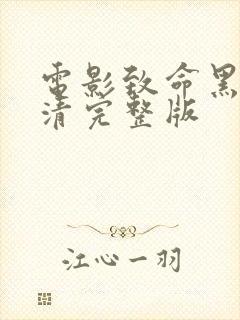 電影致命黑
清完整版
江心一羽